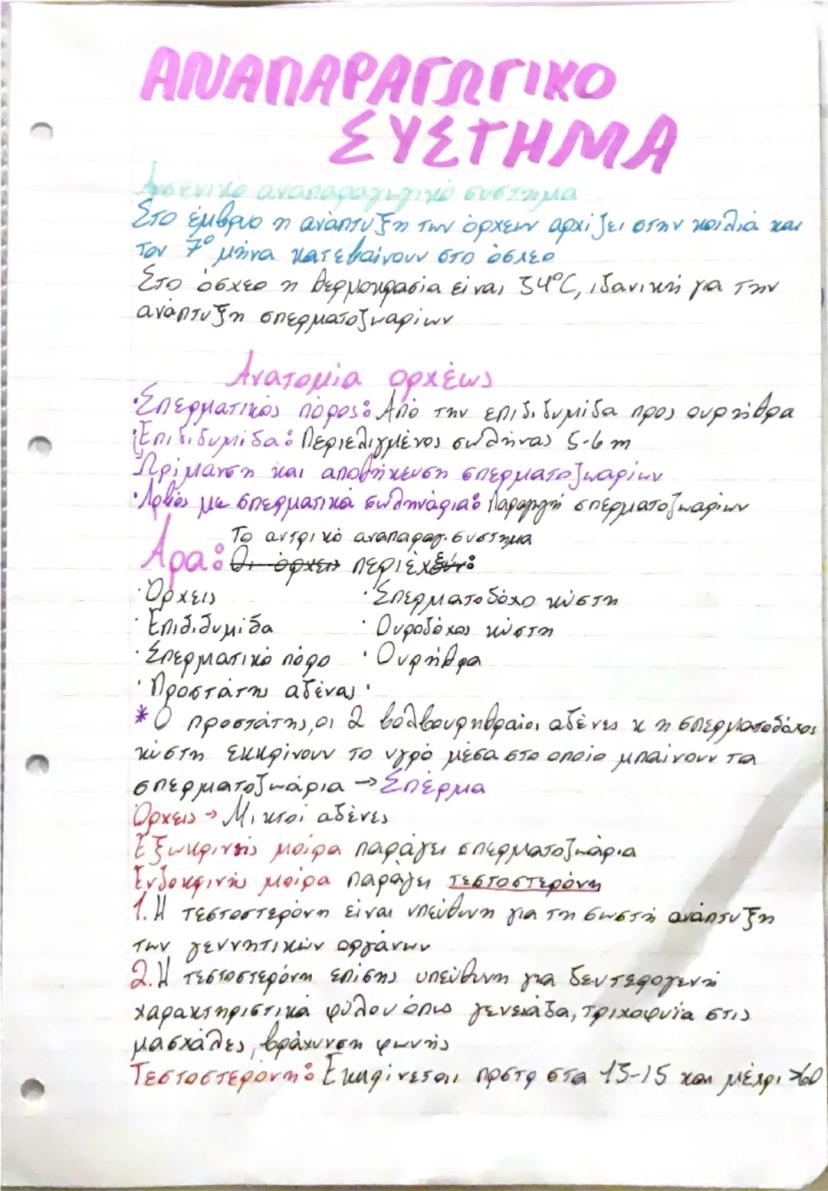 ΑΝΑΠΑΡΑΓΩΓΙΚΟ
ΣΥΣΤΗΜΑ
Αρσενικό αναπαραγωγικό σύστημα
Στο έμβρυο η ανάπτυξη των όρχεων αρχίζει στην κοιλιά και
τον 7° μήνα κατεβαίνουν στο όσχεο
Στο όσχεο η θερμοκρασία είναι 34°C, ιδανική για την
ανάπτυξη σπερματοζωαρίων
Ανατομία ορχέως
·Σπερματικός πόρος: Από την επιδιδυμίδα προς ουρήθρα
·Επιδιδυμίδα: Περιελιγμένος σωλήνας 5-6 m
Ωρίμανση και αποθήκευση σπερματοζωαρίων
·Λοβός με σπερματικά σωληνάρια: Παραγωγή σπερματοζωαρίων
Το αντρικό αναπαραγ. συστημα
Άρα: Οι όρχεις περιέχουν:
·Όρχεις ·Σπερματοδόχο κύστη
·Επιδιδυμίδα ·Ουροδόχος κύστη
·Σπερματικό πόρο ·Ουρήθρα
·Προστάτης αδένας ·
*Ο προστάτης, οι 2 βολβουρηθραίοι αδένες κ η σπερματοδόχος
κύστη εκκρίνουν το υγρό μέσα στο οποίο μπαίνουν τα
σπερματοζωάρια → Σπέρμα
Όρχεις → Μικτοί αδένες
Εξωκρινής μοίρα παράγει σπερματοζωάρια
Ενδοκρινής μοίρα παράγει τεστοστερόνη
1. Η τεστοστερόνη είναι υπεύθυνη για τη σωστή ανάπτυξη
των γεννητικών οργάνων
2. Η τεστοστερόνη επίσης υπεύθυνη για δευτερογενή
χαρακτηριστικά φύλου όπως γενειάδα, τριχοφυΐα στις
μασχάλες, βράχυνση φωνής
Τεστοστερόνη: Εκκρίνεται στα 13-15 και μέχρι >60